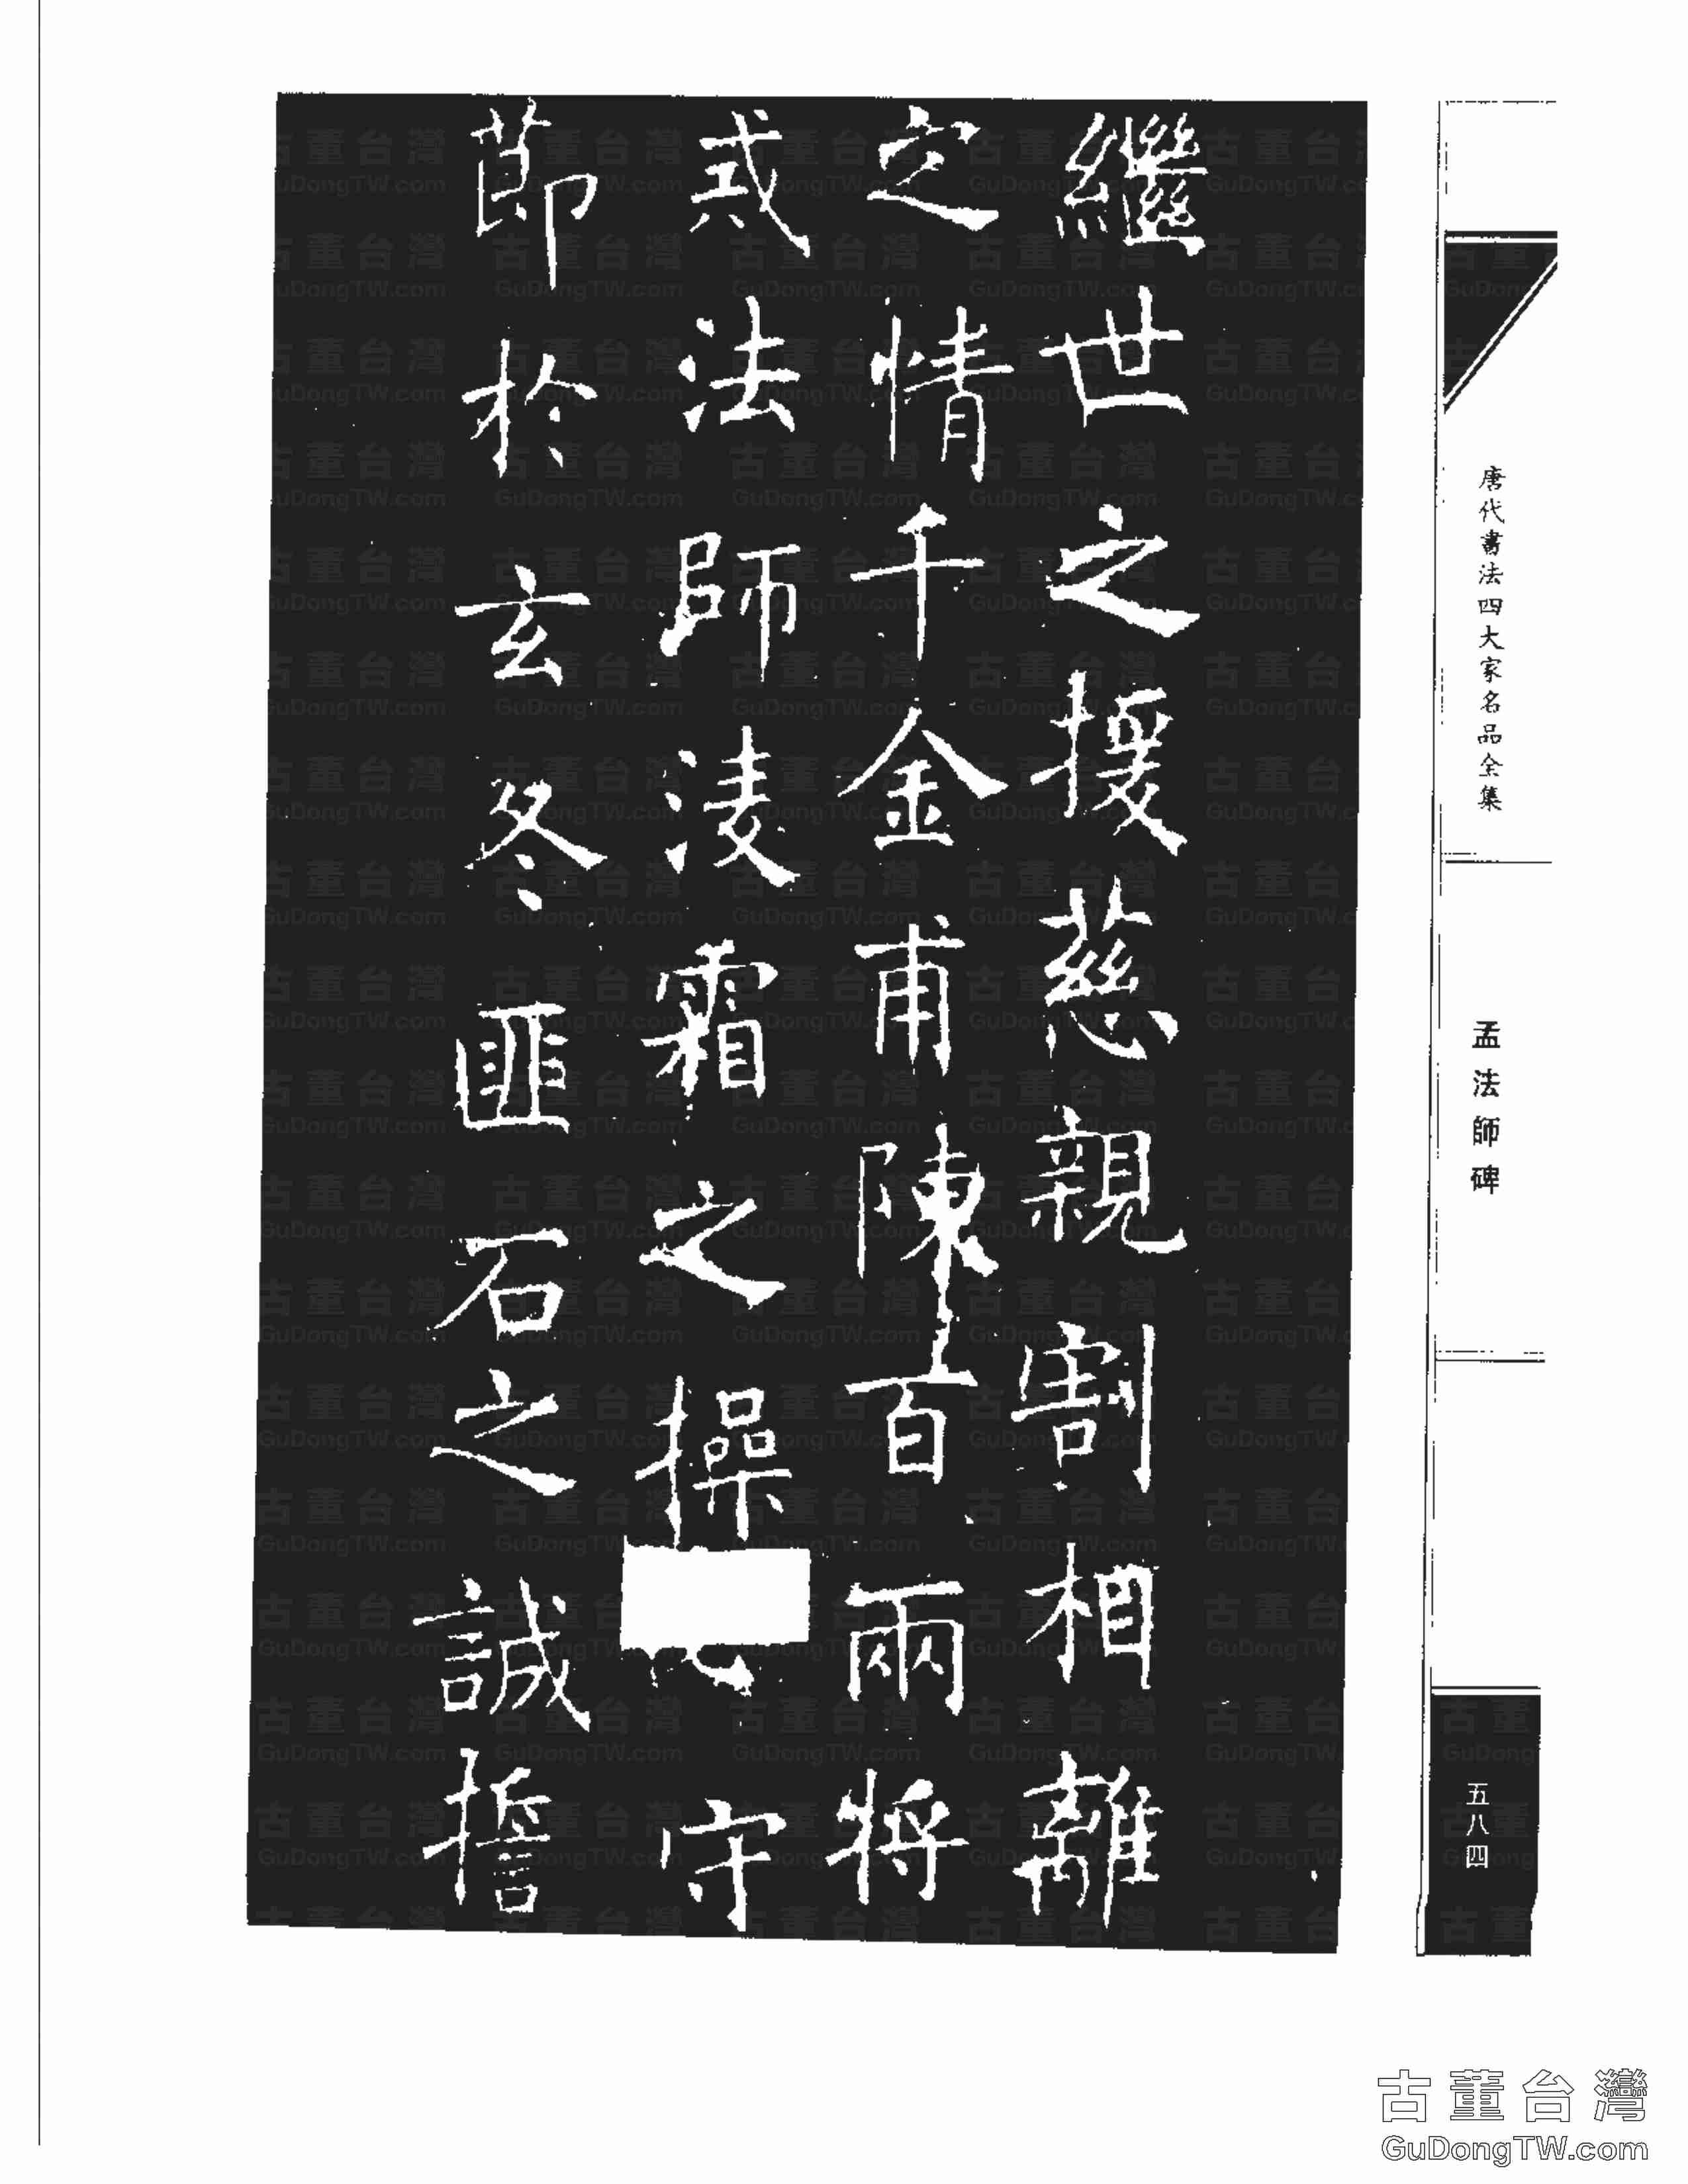 唐代書法四大家名品全集
孟法師碑
五八四
繼世之援慈親割相離
之情千金甫陳百兩將
戒法師淩霜之操守
節於玄冬匪石之誠
古董台灣
GuDongTW.com